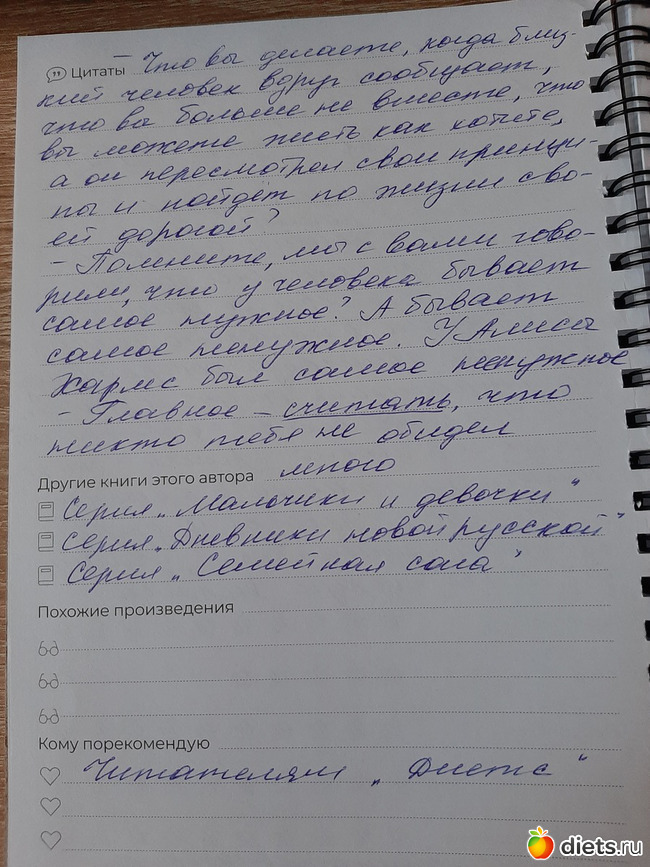 Цитаты – Что вы делаете, когда близ-
кий человек вдруг сообщает,
что вы больше не вместе, что
вы можете жить как хотите,
а он пересмотрел свои принци-
пы и пойдет по жизни сво-
ей дорогой?
– Помните, мы с вами гово-
рили, что у человека бывает
самое нужное? А бывает
самое ненужное. У Алисы
Хармс был самое ненужное
– Главное – считать, что
никто тебя не обидел
Другие книги этого автора много
Серия „Мальчики и девочки"
Серия „Дневники новой русской"
Серия „Семейная сага"
Похожие произведения
Кому порекомендую
Читателям „Диетс"
diets.ru